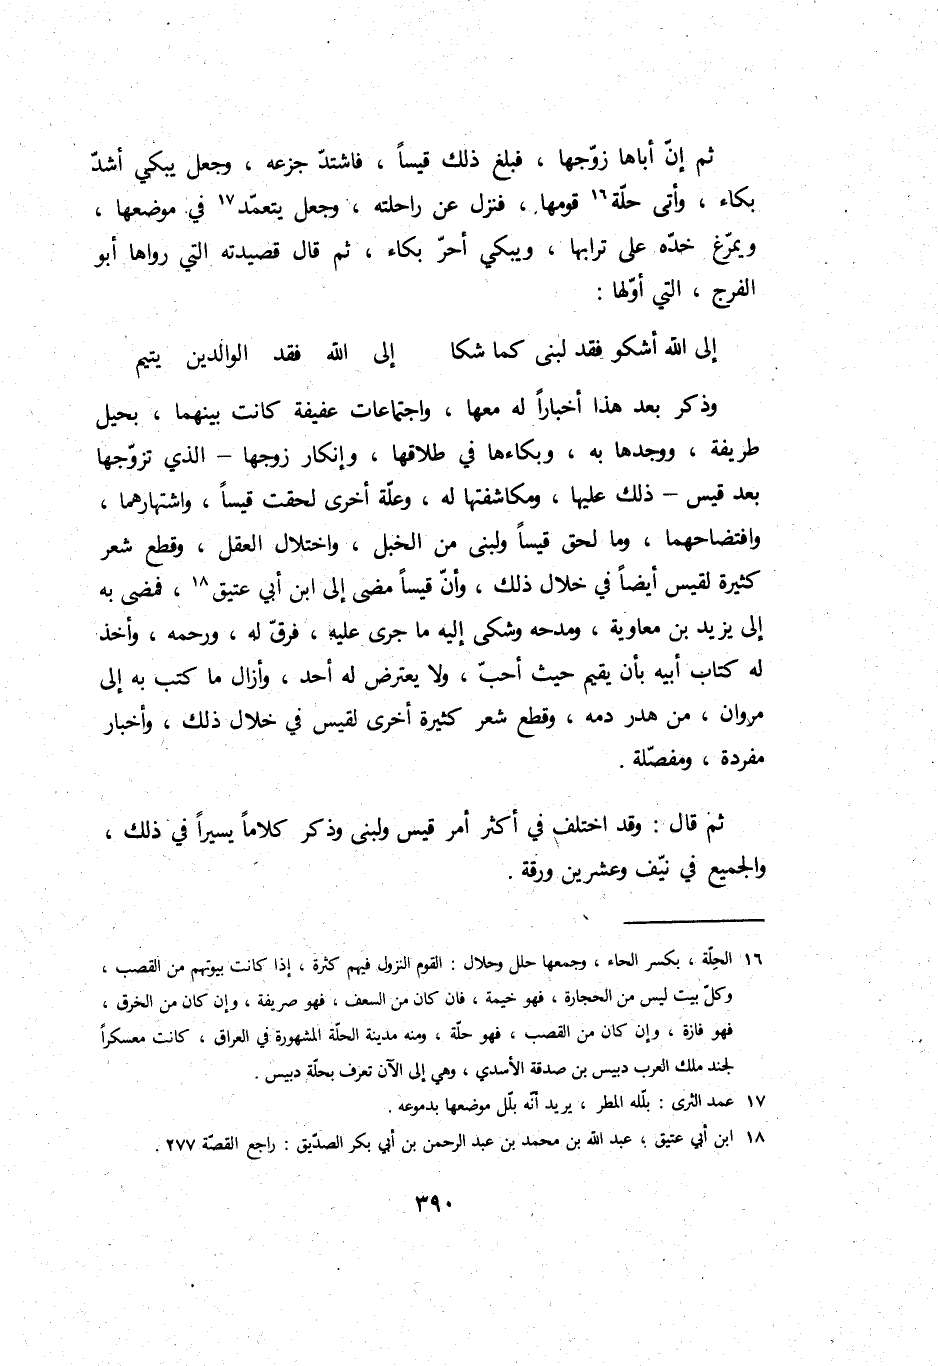 ثم إنّ أباها زوّجها ، فبلغ ذلك قيساً ، فاشتدّ جزعه ، وجعل يبكي أشدّ
بكاء ، وأتى حلّة١٦ قومها ، فنزل عن راحلته ، وجعل يتعمّد١٧ في موضعها ،
ويمرّغ خدّه على ترابها ، ويبكي أحرّ بكاء ، ثم قال قصيدته التي رواها أبو
الفرج ، التي أوّلها :
إلى الله أشكو فقد لبنى كما شكا إلى الله فقد الوالدين يتيم
وذكر بعد هذا أخباراً له معها ، واجتماعات عفيفة كانت بينهما ، بحيل
طريفة ، ووجدها به ، وبكاءها في طلاقها ، وإنكار زوجها – الذي تزوّجها
بعد قيس – ذلك عليها ، ومكاشفتها له ، وعلّة أخرى لحقت قيساً ، واشتهارهما ،
وافتضاحهما ، وما لحق قيساً ولبنى من الخبل ، واختلال العقل ، وقطع شعر
كثيرة لقيس أيضاً في خلال ذلك ، وأنّ قيساً مضى إلى ابن أبي عتيق١٨ ، فمضى به
إلى يزيد بن معاوية ، ومدحه وشكى إليه ما جرى عليه ، فرقّ له ، ورحمه ، وأخذ
له كتاب أبيه بأن يقيم حيث أحبّ ، ولا يعترض له أحد ، وأزال ما كتب به إلى
مروان ، من هدر دمه ، وقطع شعر كثيرة أخرى لقيس في خلال ذلك ، وأخبار
مفردة ، ومفصّلة .
ثم قال : وقد اختلف في أكثر أمر قيس ولبنى وذكر كلاماً يسيراً في ذلك ،
والجميع في نيّف وعشرين ورقة .
١٦ الحِلّة ، بكسر الحاء ، وجمعها حلل وحلال : القوم النزول فيهم كثرة ، إذا كانت بيوتهم من القصب ،
وكلّ بيت ليس من الحجارة ، فهو خيمة ، فان كان من السعف ، فهو صريفة ، وإن كان من الخرق ،
فهو فازة ، وإن كان من القصب ، فهو حلّة ، ومنه مدينة الحلّة المشهورة في العراق ، كانت معسكراً
لجند ملك العرب دبيس بن صدقة الأسدي ، وهي إلى الآن تعرف بحلّة دبيس .
١٧ عمد الثرى : بلّله المطر ، يريد أنّه بلّل موضعها بدموعه .
١٨ ابن أبي عتيق ، عبد الله بن محمد بن عبد الرحمن بن أبي بكر الصدّيق : راجع القصّة ٢٧٧ .
٣٩٠